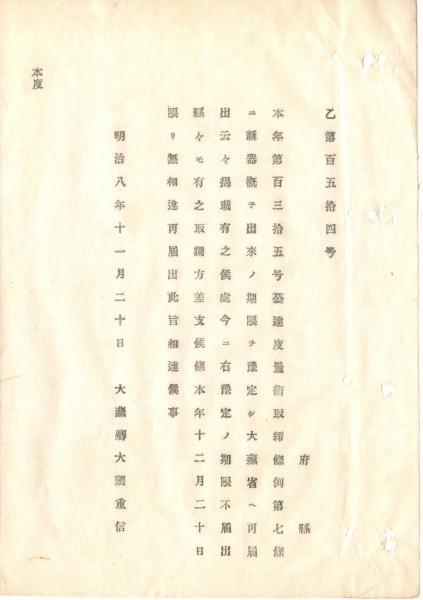 乙第百五拾四号
府縣
本年第百三拾五号公達度量衡取締條例第七條
ニ新器概子出来ノ期限ヲ豫定シ大藏省ヘ可届
出云々掲載有之候處今ニ右豫定ノ期限不届出
縣々モ有之取調方差支候條本年十二月二十日
限リ無相違可届出此旨相達候事
明治八年十一月二十日 大藏卿大隈重信
本度